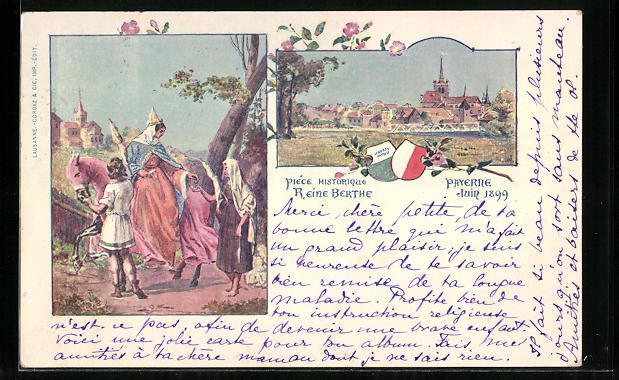 LAUSANNE.-CORBAZ & CIE, IMP.-ÉDIT.
PIÉCE HISTORIQUE
REINE BERTHE
PAYERNE
JUIN 1899
Merci, chère petite, de ta
bonne lettre qui m'a fait
un grand plaisir; je suis
si heureuse de te savoir
bien remise de ta longue
maladie. Profite bien de
ton instruction religieuse
n'est-ce pas, afin de devenir une brave enfant.
Voici une jolie carte pour ton album. Fais mes
amitiés à ta chère maman dont je ne sais rien.
Il fait si beau depuis plusieurs
jours qu'on sort sans manteau.
Amitiés et baisers de